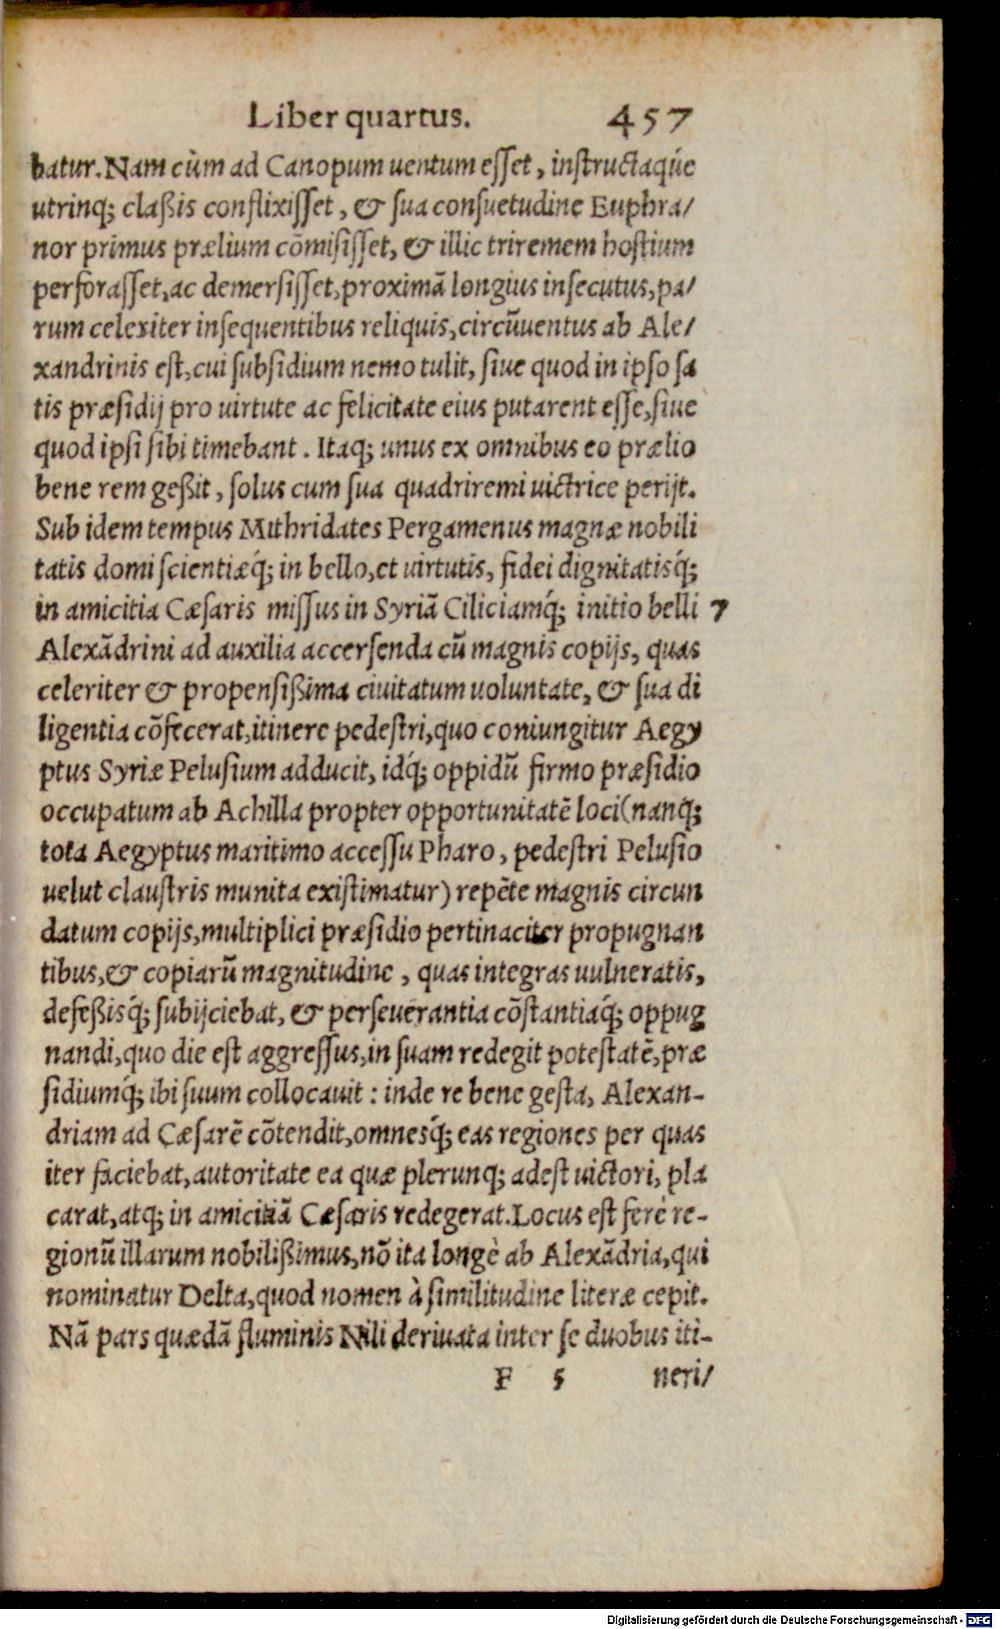 Liber quartus. 457
batur. Nam cùm ad Canopum uentum esset, instructaq́ue
utrinq; claßis conflixisset, & sua consuetudine Euphra/
nor primus prælium cõmisisset, & illic triremem hostium
perforasset, ac demersisset, proximã longius insecutus, pa/
rum celeriter insequentibus reliquis, circũuentus ab Ale/
xandrinis est, cui subsidium nemo tulit, siue quod in ipso sa
tis præsidij pro uirtute ac felicitate eius putarent esse, siue
quod ipsi sibi timebant. Itaq; unus ex omnibus eo prælio
bene rem geßit, solus cum sua quadriremi uictrice perijt.
Sub idem tempus Mithridates Pergamenus magnæ nobili
tatis domi scientiæq́; in bello, et uirtutis, fidei dignitatisq́;
in amicitia Cæsaris missus in Syriã Ciliciamq́; initio belli 7
Alexãdrini ad auxilia accersenda cũ magnis copijs, quas
celeriter & propensißima ciuitatum uoluntate, & sua di
ligentia cõfecerat, itinere pedestri, quo coniungitur Aegy
ptus Syriæ Pelusium adducit, idq́; oppidũ firmo præsidio
occupatum ab Achilla propter opportunitatẽ loci (nanq́;
tota Aegyptus maritimo accessu Pharo, pedestri Pelusio
uelut claustris munita existimatur) repẽte magnis circun
datum copijs, multiplici præsidio pertinaciter propugnan
tibus, & copiarũ magnitudine, quas integras uulneratis,
defeßisq́; subijciebat, & perseuerantia cõstantiaq́; oppug
nandi, quo die est aggressus, in suam redegit potestatẽ, præ
sidiumq́; ibi suum collocauit: inde re bene gesta, Alexan-
driam ad Cæsarẽ cõtendit, omnesq́; eas regiones per quas
iter faciebat, autoritate ea quæ plerunq; adest uictori, pla
carat, atq; in amicitiã Cæsaris redegerat. Locus est ferè re-
gionũ illarum nobilißimus, nõ ita longè ab Alexãdria, qui
nominatur Delta, quod nomen à similitudine literæ cepit.
Nã pars quædã fluminis Nili deriuata inter se duobus iti-
F 5 neri/
Digitalisierung gefördert durch die Deutsche Forschungsgemeinschaft - DFG